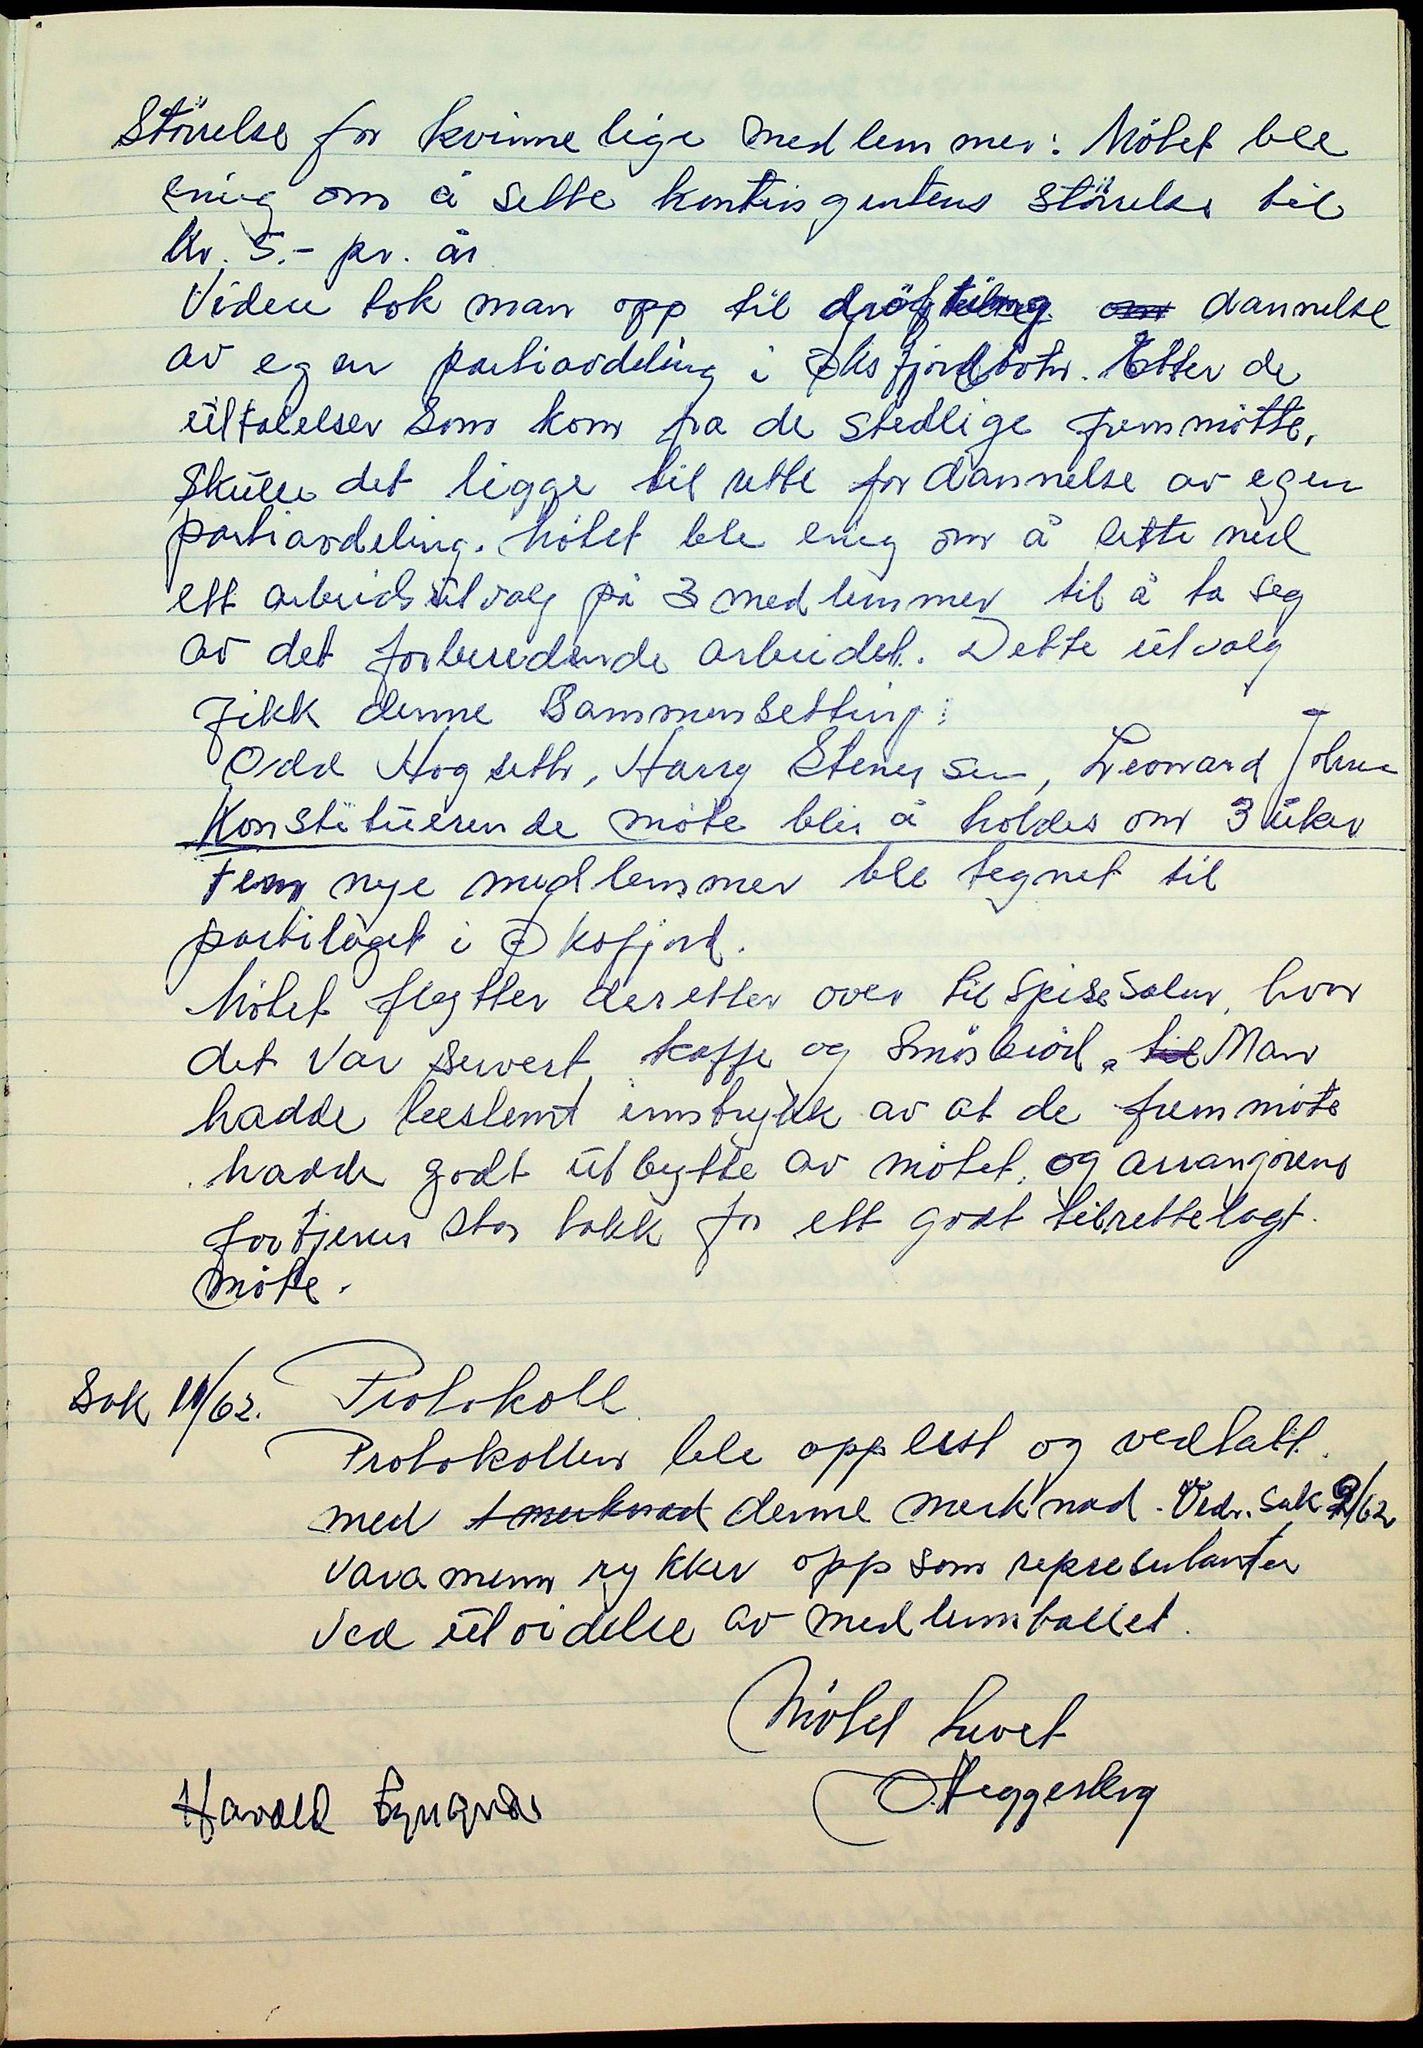 Störrelse for kvinnelige medlemmer: Mötet ble
enig om å sette kontingentens störrelse til
Kr. 5.- pr. år
Videre tok man opp til dröfting om dannelse
av egen partiavdeling i Øksfjordbotn. Etter de
uttalelser som kom fra de stedlige fremmötte,
skulle det ligge til rette for dannelse av egen
partiavdeling. Mötet ble enig om å sette ned
ett arbeidsutvalg på 3 medlemmer til å ta seg
av det forberedende arbeidet. Dette utvalg
fikk denne sammensetting:
Odd Hogseth, Harry Stenersen, Leonard Johnsen
Konstituerende möte blir å holdes om 3 uker
Fem nye medlemmer ble tegnet til
partilaget i Øksfjord.
Mötet flytter deretter over til spisesalen, hvor
det var servert kaffe og smörbröd. til Man
hadde bestemt inntrykk av at de fremmöte
hadde godt utbytte av mötet, og arrangörene
fortjener stor takk for ett godt tilrettelagt
möte.
Sak 11/62. Protokoll
Protokollen ble opplest og vedtatt
med merknad denne merknad. Vedr. Sak 9/62
varamenn rykker opp som representanter
ved utvidelse av medlemtallet.
Mötet hevet
O. Heggesberg
Harald